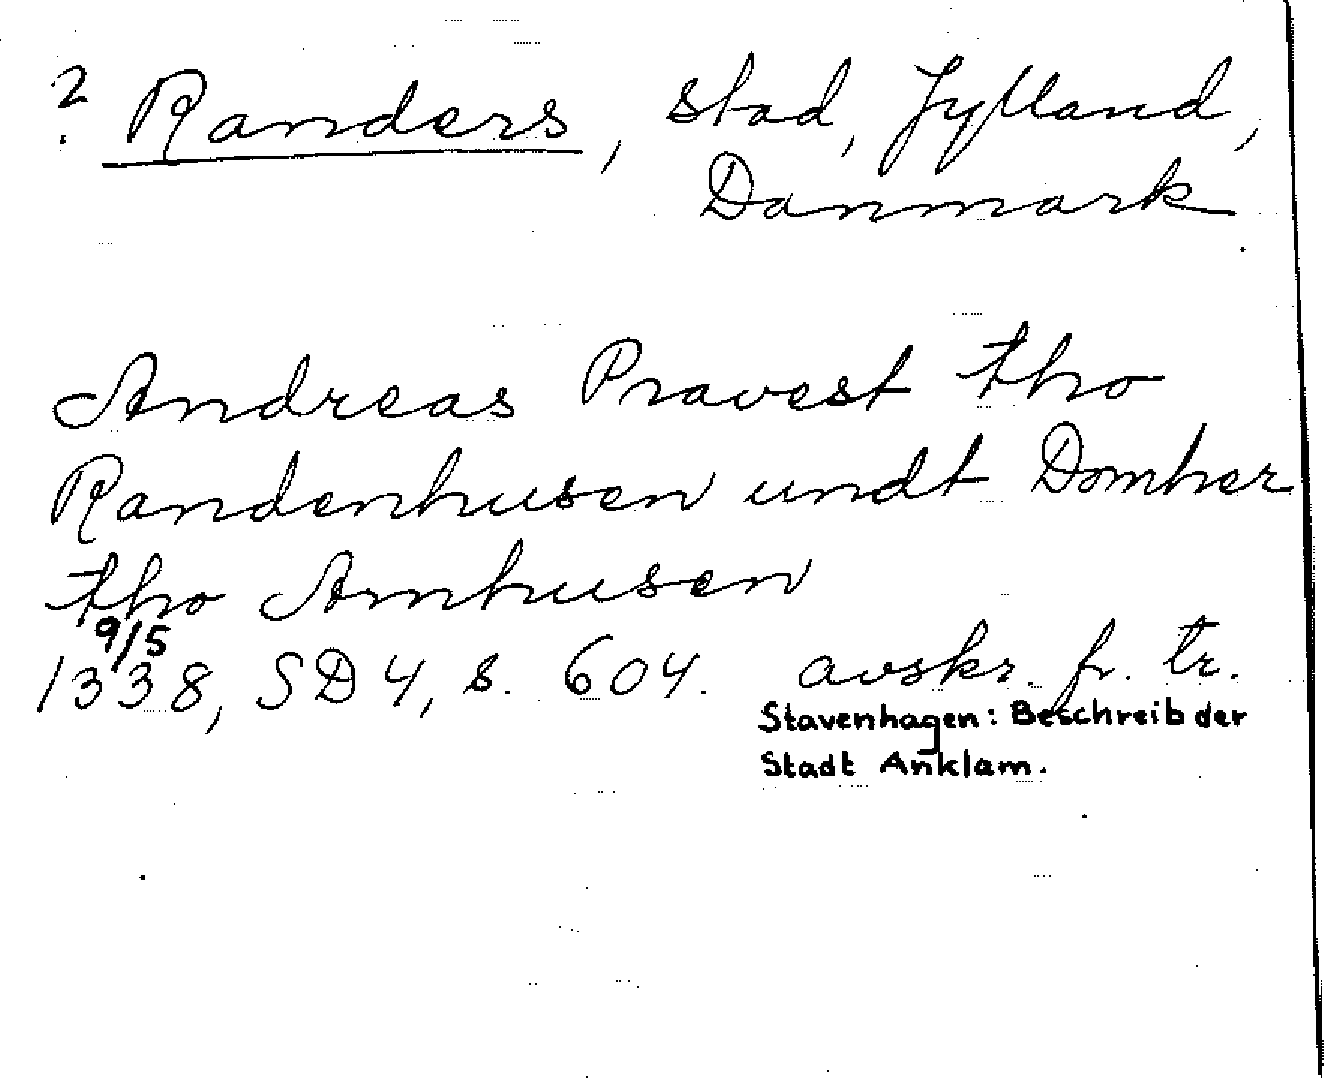 ? Randers, stad, Jylland,
Danmark
Andreas Pravest tho
Randenhusen undt Domher
tho Arnhusen
9/5
1338, SD 4, s. 604. avskr. fr. tr.
Stavenhagen: Beschreib der
Stadt Anklam.